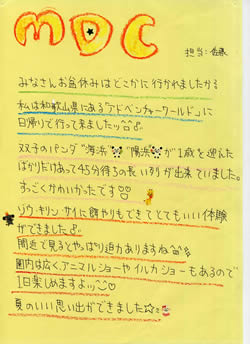 MDC
担当：佐藤
みなさんお盆休みはどこかに行かれましたか？
私は和歌山県にある「アドベンチャーワールド」に
日帰りで行って来ました
双子のパンダ"海浜""陽浜"が1歳を迎えた
ばかりだけあって45分待ちの長い列が出来ていました。
すっごくかわいかったです♡
ゾウ・キリン・サイに餌やりもできてとてもいい体験
ができました♪
間近で見るとやっぱり迫力ありますね
園内は広く、アニマルショーやイルカショーもあるので
1日楽しめますよ
夏のいい思い出ができました☆